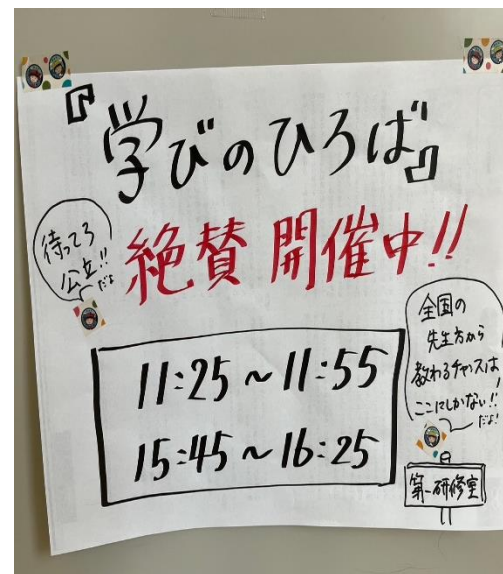 『学びのひろば』
絶賛 開催中!!
待ってろ
公立!!
だよ
11:25~11:55
15:45~16:25
全国の
先生方から
教わるチャンスは
ここにしかない!!
だよ!
第一研修室